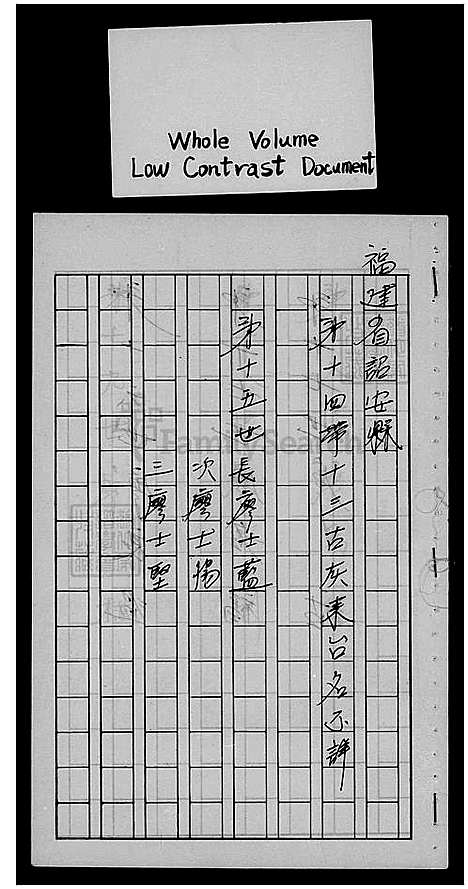 Whole Volume
Low Contrast Document
福建省詔安縣
第十四帶十三古灰来台名不詳
第十五世長廖士藍
次廖士揚
三廖士堅
FamilySearch